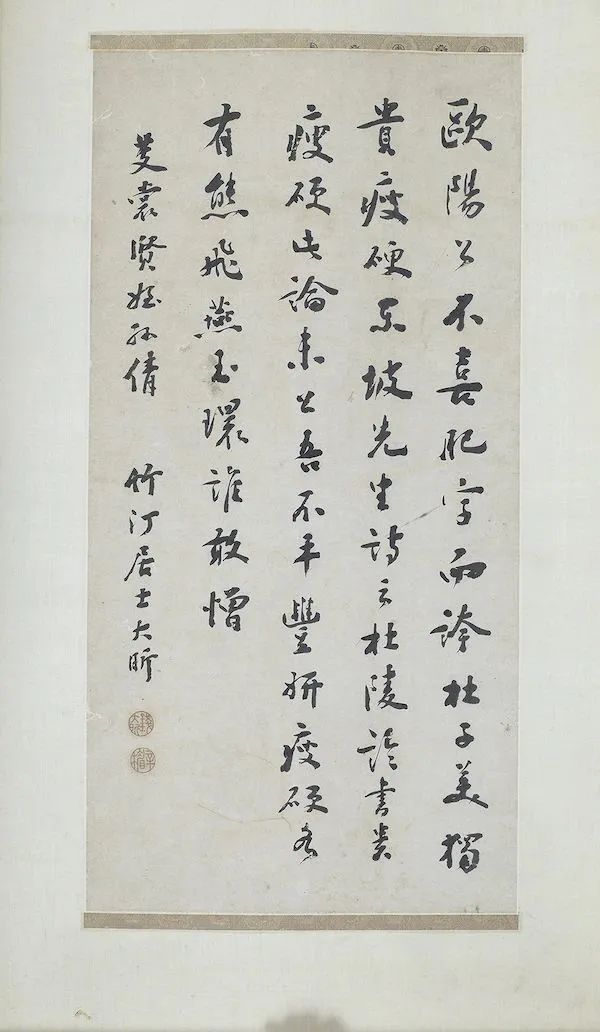 歐陽公不喜肥字而誇杜子美獨
貴瘦硬東坡先生詩云杜陵評書貴
瘦硬此論未公吾不平豐妍瘦硬各
有態飛燕玉環誰敢憎
芰裳賢姪孫倩 竹汀居士大昕